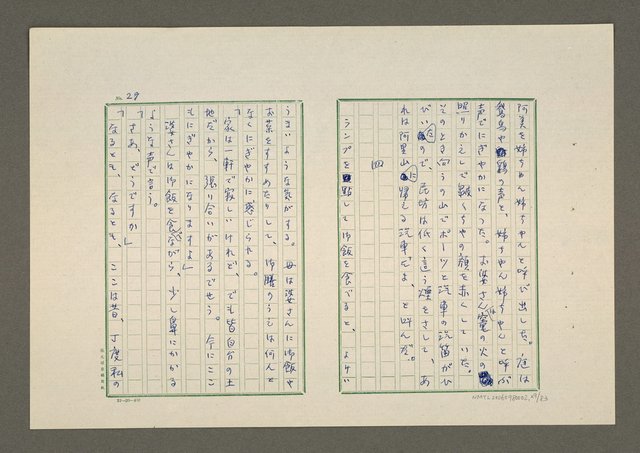 阿美を姉ちやん姉ちやんと呼び出した。庭は
鵞鳥や鶏の声と、姉ちやん姉ちやんと呼ぶ
声でにぎやかになつた。お婆さんは竈の火の
照りかえしで皺くちやの顔を赤くしていた。
そのとき向うの山でポーツと汽車の汽笛がひ
びいたので、民坊は低く這う煙をさして、あ
れは阿里山に帰える汽車だよ、と叫んだ。
四
ランプを点して御飯を食べると、よけい
うまいような気がする。母は婆さんに御飯や
お菜をすすめたりして、御膳のうえは何んと
なくにぎやかに感じられる。
「家は一軒で寂しいけれど、でも皆自分の土
地だから、張り合いがあるでせう。今にここ
もにぎやかになりますよ」
婆さんは御飯を食べながら、少し鼻にかかる
ような声で言う。
「さあ、どうですか」
「なるとも、なるとも、ここは昔、丁度私の
No. 29
NMTL20060980002, 29/83